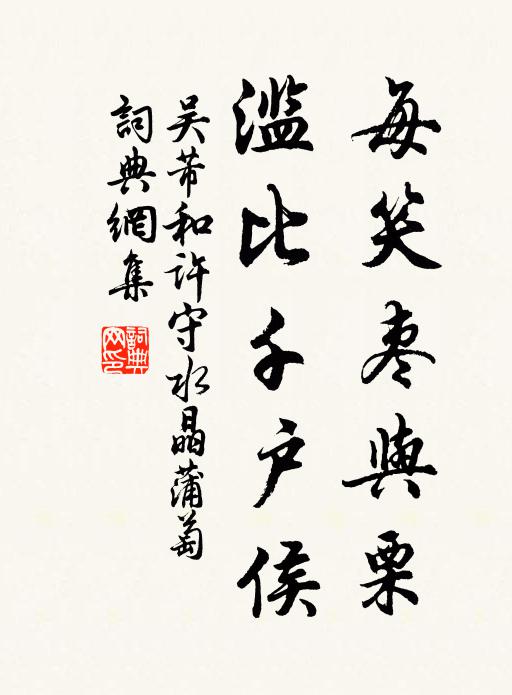 每笑枣與栗
滥比千户侯
吴芾和许守水晶蒲萄
詞典網集
詞典
网印